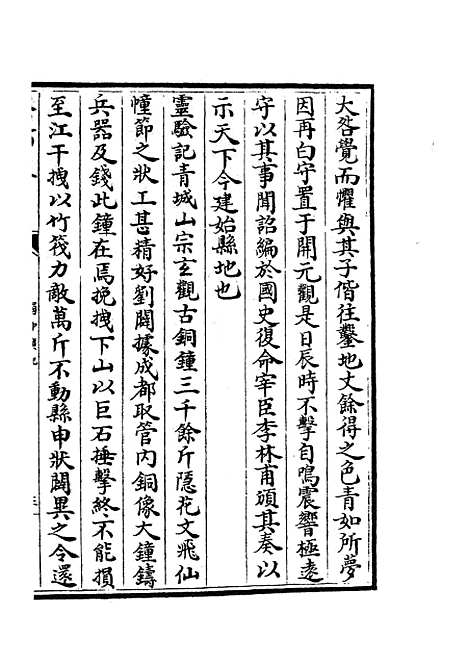 大咎覺而懼與其子偕往鑿地丈餘得之色青如所夢
因再白守置于開元觀是日辰時不擊自鳴震響極遠
守以其事聞詔編於國史復命宰臣李林甫頭其奏以
示天下今建始縣地也
靈驗記青城山宗玄觀古銅鐘三千餘斤隱花文飛仙
幢節之狀工甚精好劉闢據成都取管內銅像大鐘鑄
兵器及錢此鐘在焉挽拽下山以巨石捶擊終不能損
至江干拽以竹筏力敵萬斤不動縣申狀闢異之令還